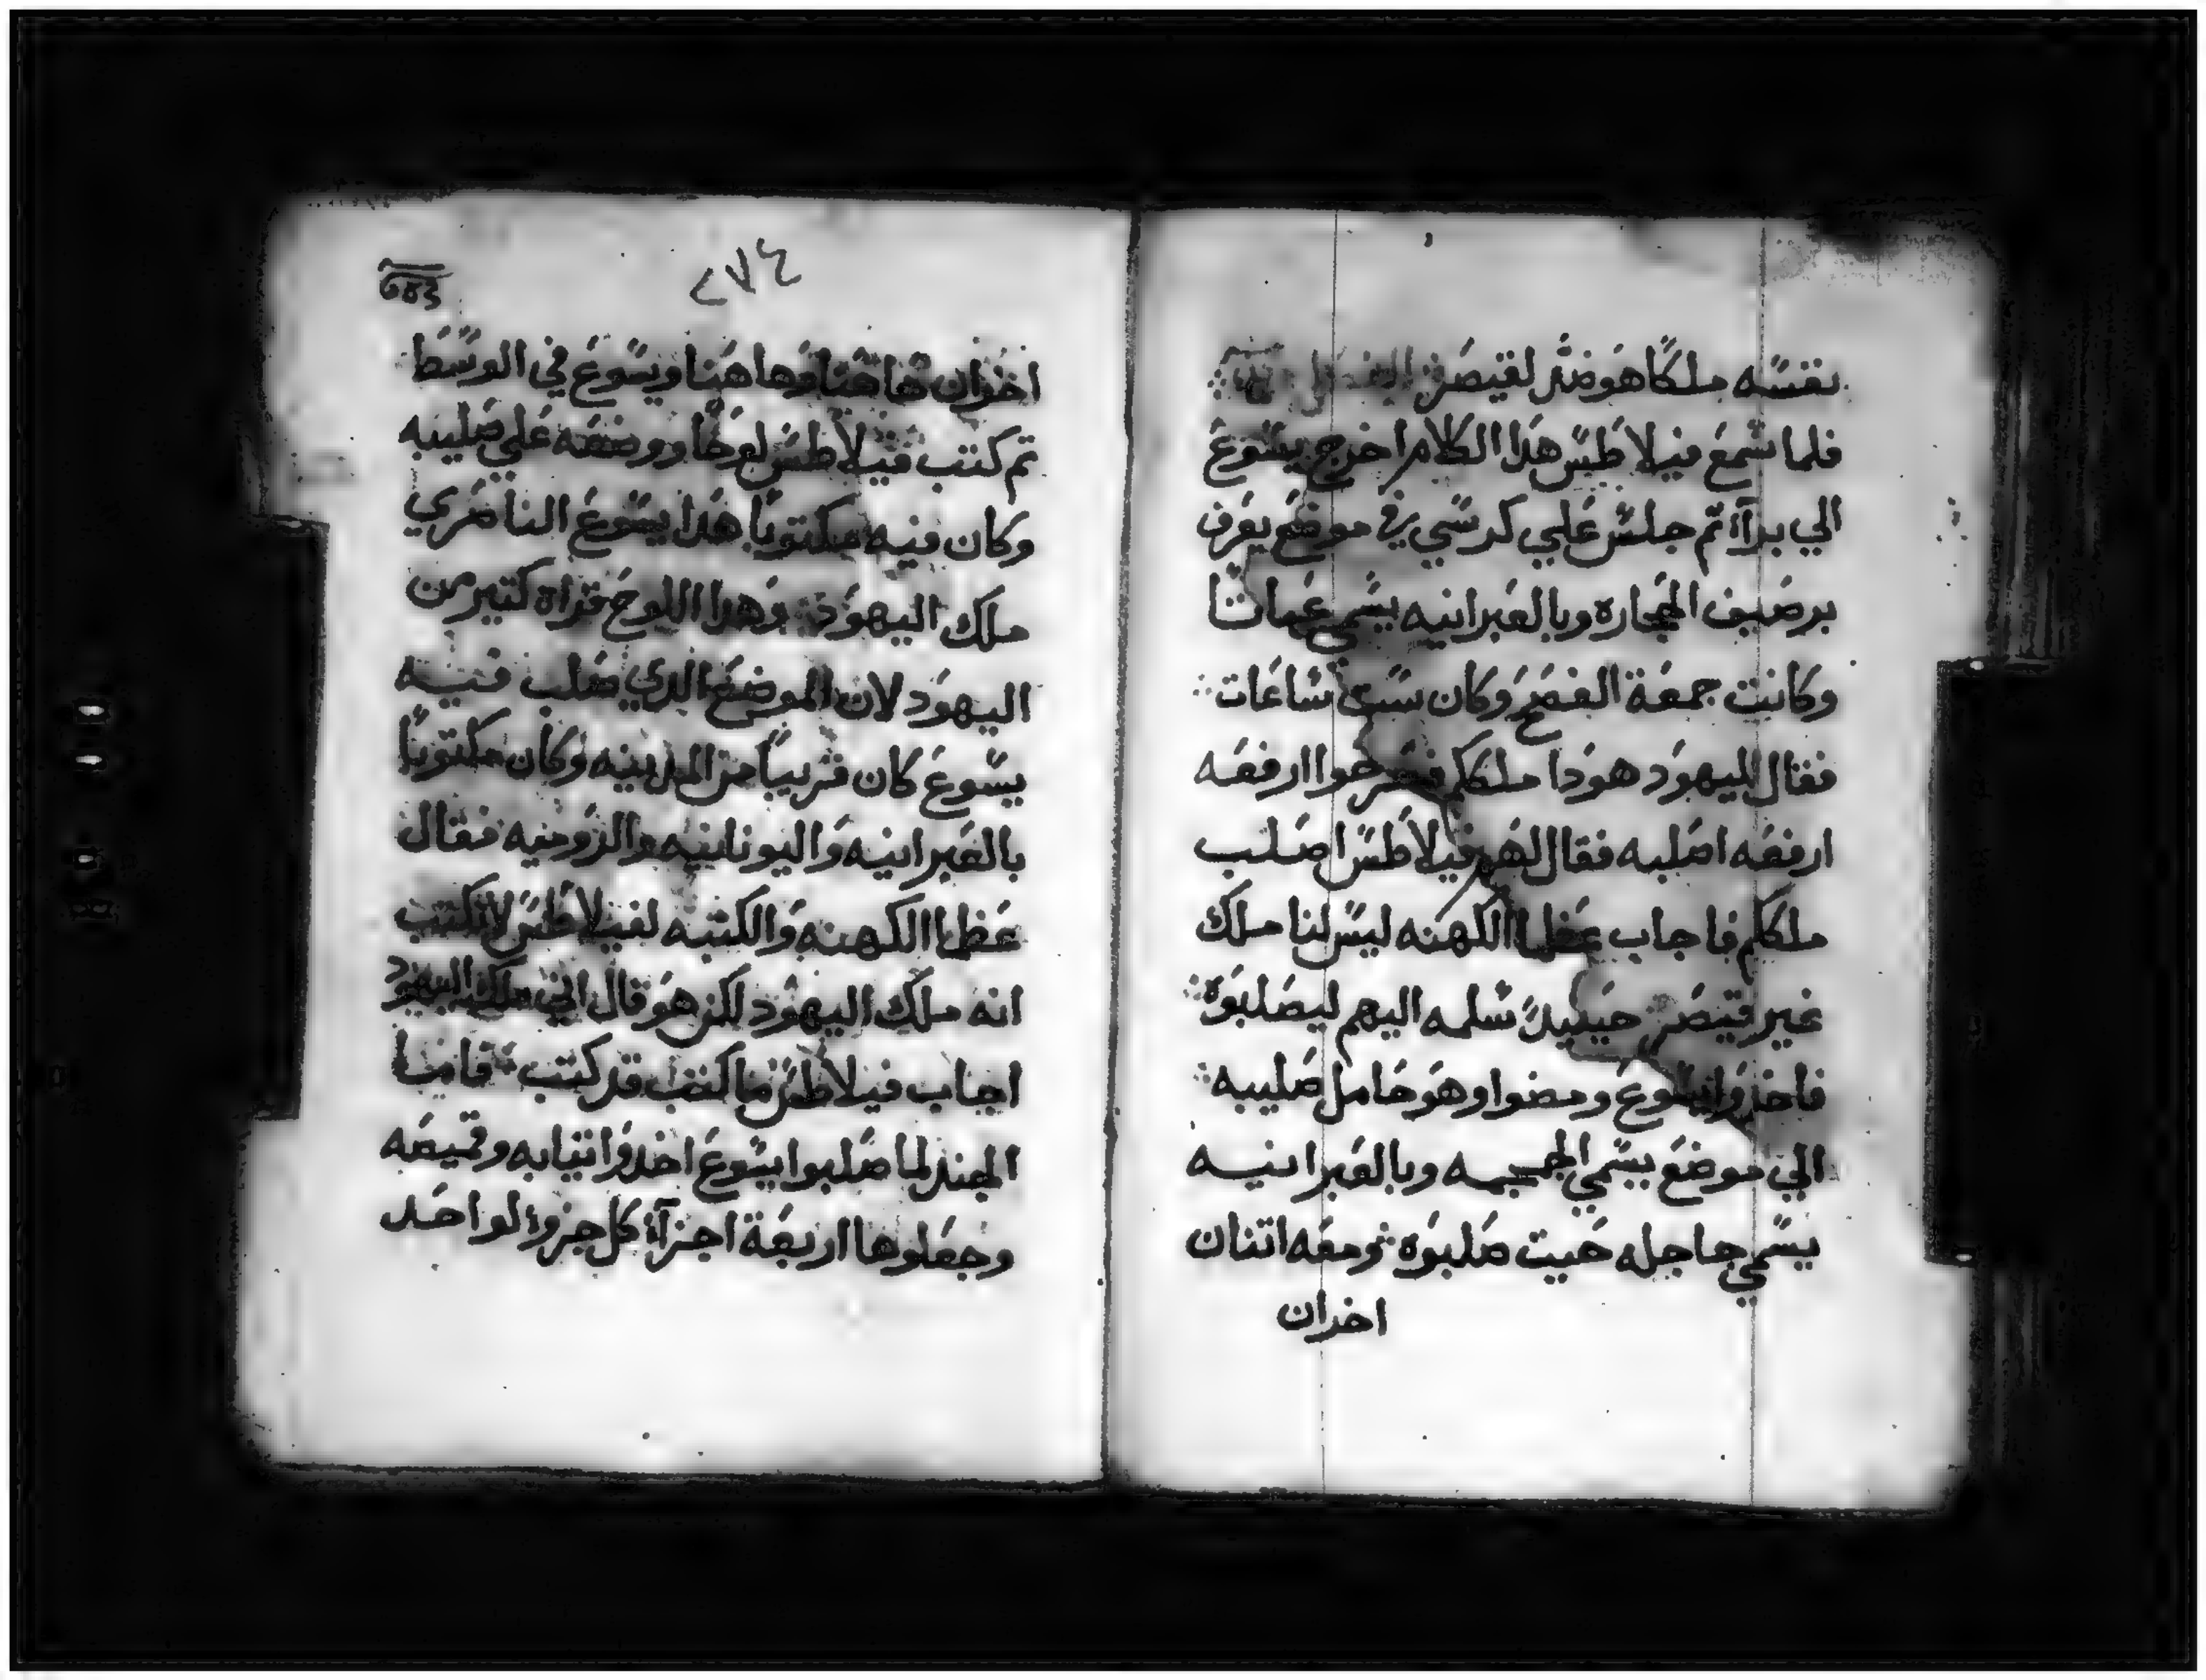 نفسه ملكا هو ضد لقيصر
فلما سمع فيلاطس هدا الكلام اخرج يسوع
الي براا تم جلس علي كرسي في موضع يعرف
برصيف الحجاره وبالعبرانيه يسمي غباتا
وكانت جمعة الفصح وكان ست ساعات
فقال لليهود هودا ملككم فصرخوا ارفعه
ارفعه اصلبه فقال لهم فيلاطس اصلب
ملككم فاجاب عظما الكهنه ليس لنا ملك
غير قيصر حينيد سلمه اليهم ليصلبوه
فاخدوا يسوع ومضوا وهو حامل صليبه
الي موضع يسمي الجمجمه وبالعبرانيه
يسمي جاجله حيت صلبوه ومعه اتنان
اخران
٢٧٤
اخران هاهنا وهاهنا ويسوع في الوسط
تم كتب فيلاطس لوحا ووضعه علي صليبه
وكان فيه مكتوبا هدا يسوع الناصري
ملك اليهود وهدا اللوح قراه كتير من
اليهود لان الموضع الدي صلب فيه
يسوع كان قريبا من المدينه وكان مكتوبا
بالعبرانيه واليونانيه والروميه فقال
عظما الكهنه والكتبه لفيلاطس لا تكتب
انه ملك اليهود لكن هو قال اني ملك اليهود
اجاب فيلاطس ما كتبت قد كتبت فاما
الجند لما صلبوا يسوع اخدوا تيابه وقميصه
وجعلوها اربعة اجزآء كل جزو لواحد